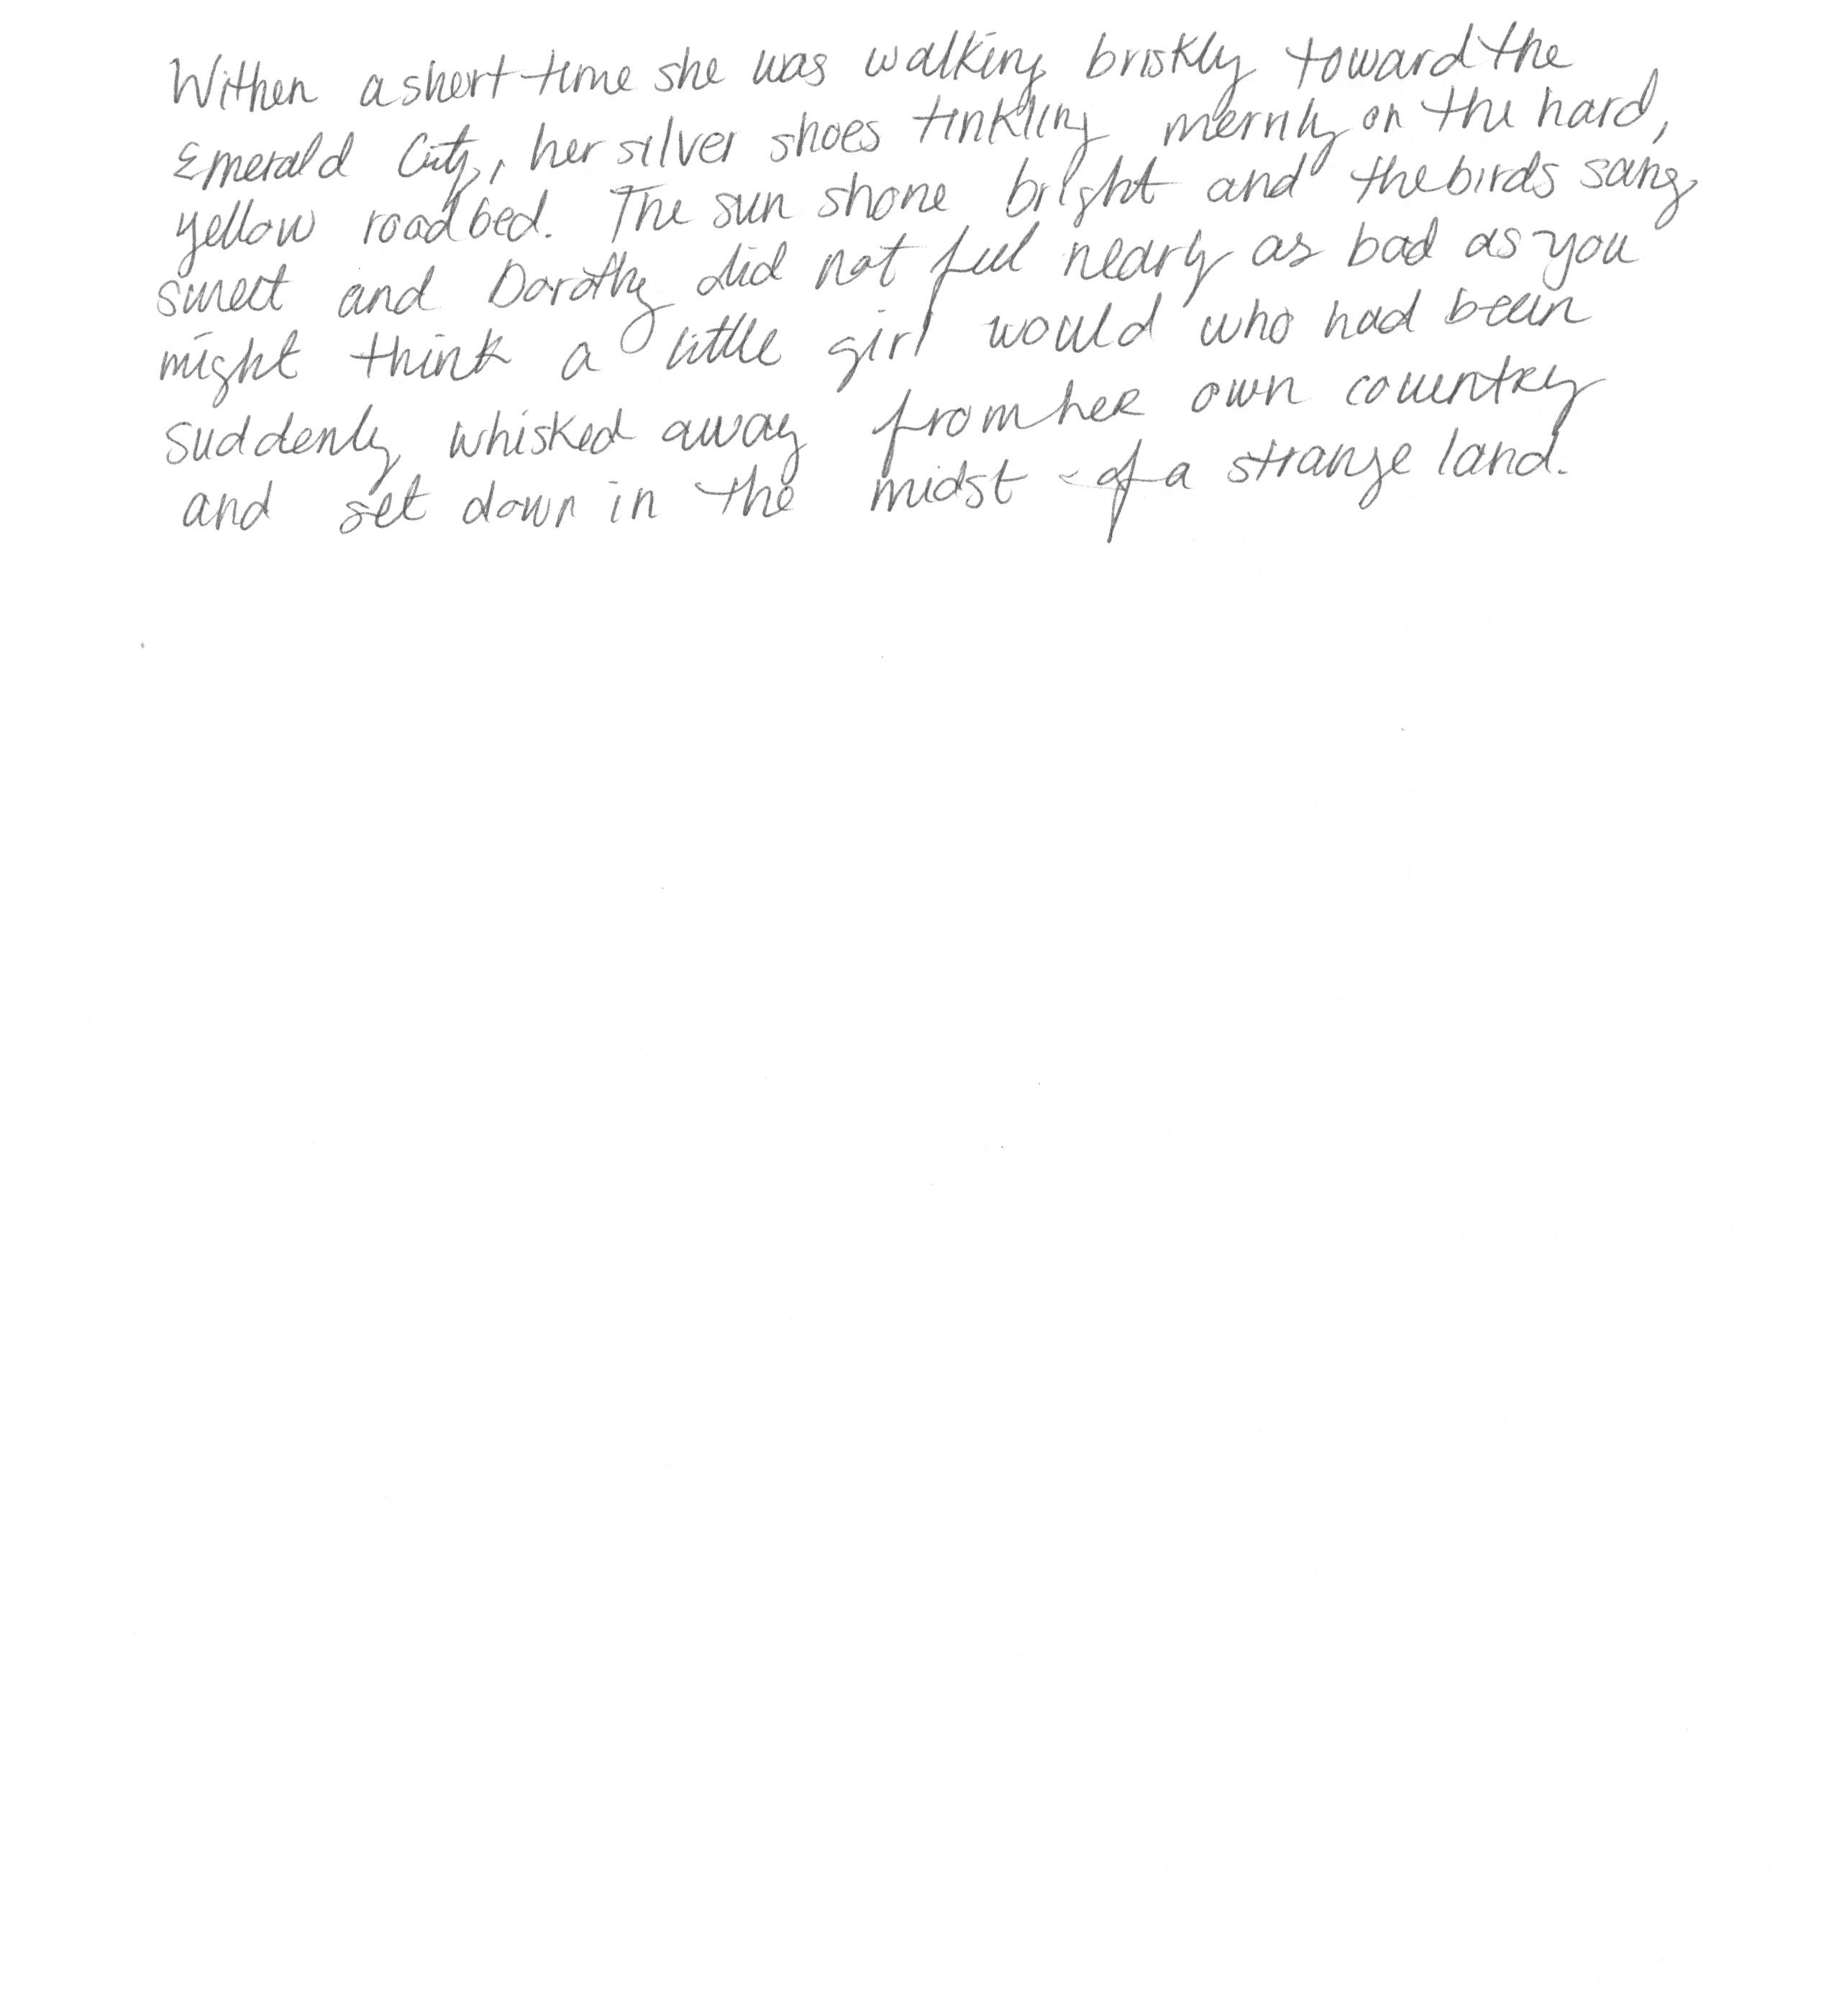 Withen a short time she was walking briskly toward the
Emerald City, her silver shoes tinkling merrily on the hard,
yellow roadbed. The sun shone bright and the birds sang
sweet and Dorothy did not feel nearly as bad as you
might think a little girl would who had been
suddenly whisked away from her own country
and set down in the midst of a strange land.